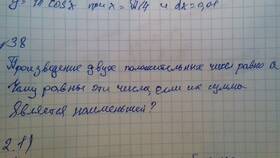 y = cos x при x = π/4 и dx = 0,01
38
Произведение двух положительных чисел равно a
Чему равны эти числа, если их сумма
является наименьшей?
2.1)